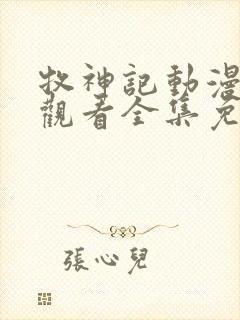 牧神記動漫
觀看全集免
張心兒